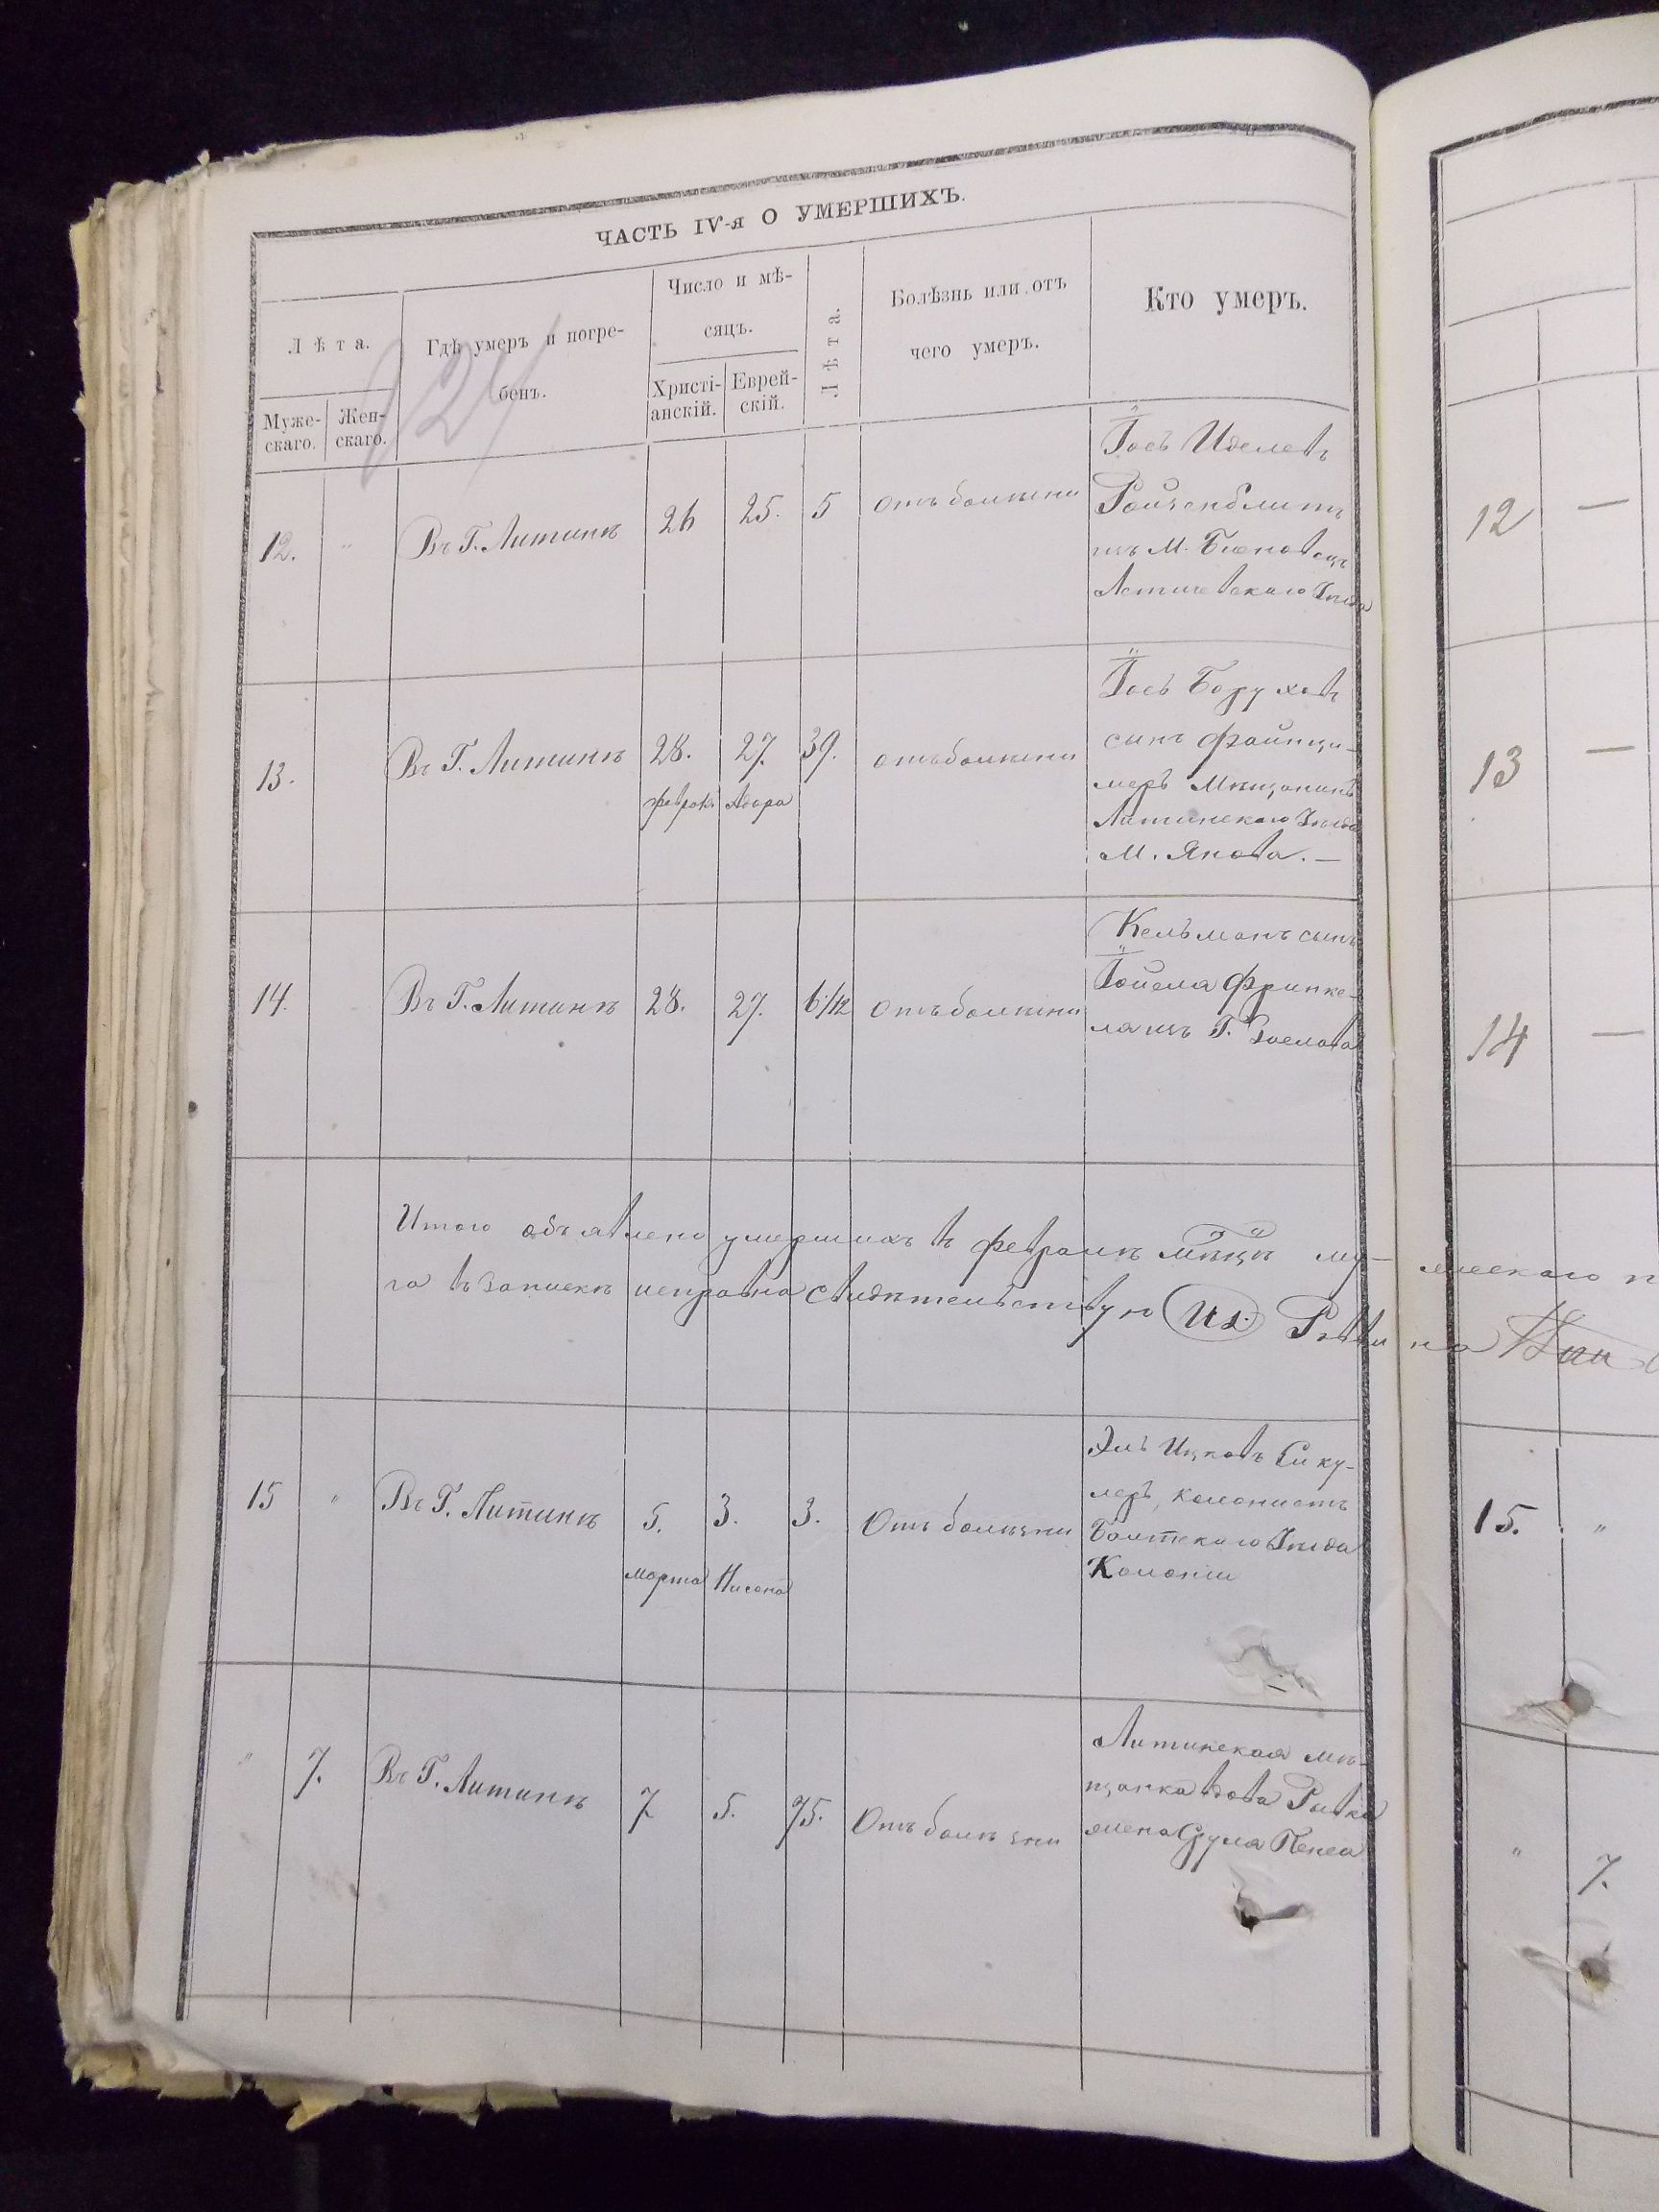 ЧАСТЬ IV-я О УМЕРШИХЪ.
Лѣта.
Муже-
скаго.
Жен-
скаго.
Гдѣ умеръ и погре-
бенъ.
Число и мѣ-
сяцъ.
Христі-
анскій.
Еврей-
скій.
Лѣта.
Болѣзнь или отъ
чего умеръ.
Кто умеръ.
12.
„
Въ Г. Литинѣ
26
25.
5
отъ болѣзни
Іось Иделевъ
изъ М.
Летичевскаго Уѣзда
13.
Въ Г. Литинѣ
28.
27.
39.
феврал.
Адара
отъ болѣзни
Іось Боруховъ
сынъ Файнци-
меръ Мѣщанинъ
Литинскаго Уѣзда
М. Янова. —
14.
Въ Г. Литинѣ
28.
27.
6/12
отъ болѣзни
Кельманъ сынъ
Іойела Финке-
ля изъ Г.
Итого объявлено умершихъ въ февралѣ м̃ц̃ѣ му-
га въ запискѣ исправна свидѣтельствую
15
„
Въ Г. Литинѣ
5.
3.
3.
Марта
Нисона
Отъ болѣзни
Эль Ицковъ Сику-
леръ, колонистъ
Балтскаго Уѣзда
Колоніи
„
7.
Въ Г. Литинѣ
7
5.
75.
Отъ болѣзни
Литинская мѣ-
щанка вдова Рывка
жена Сруля Пенса
12
—
13
—
14
—
15.
„
„
7.